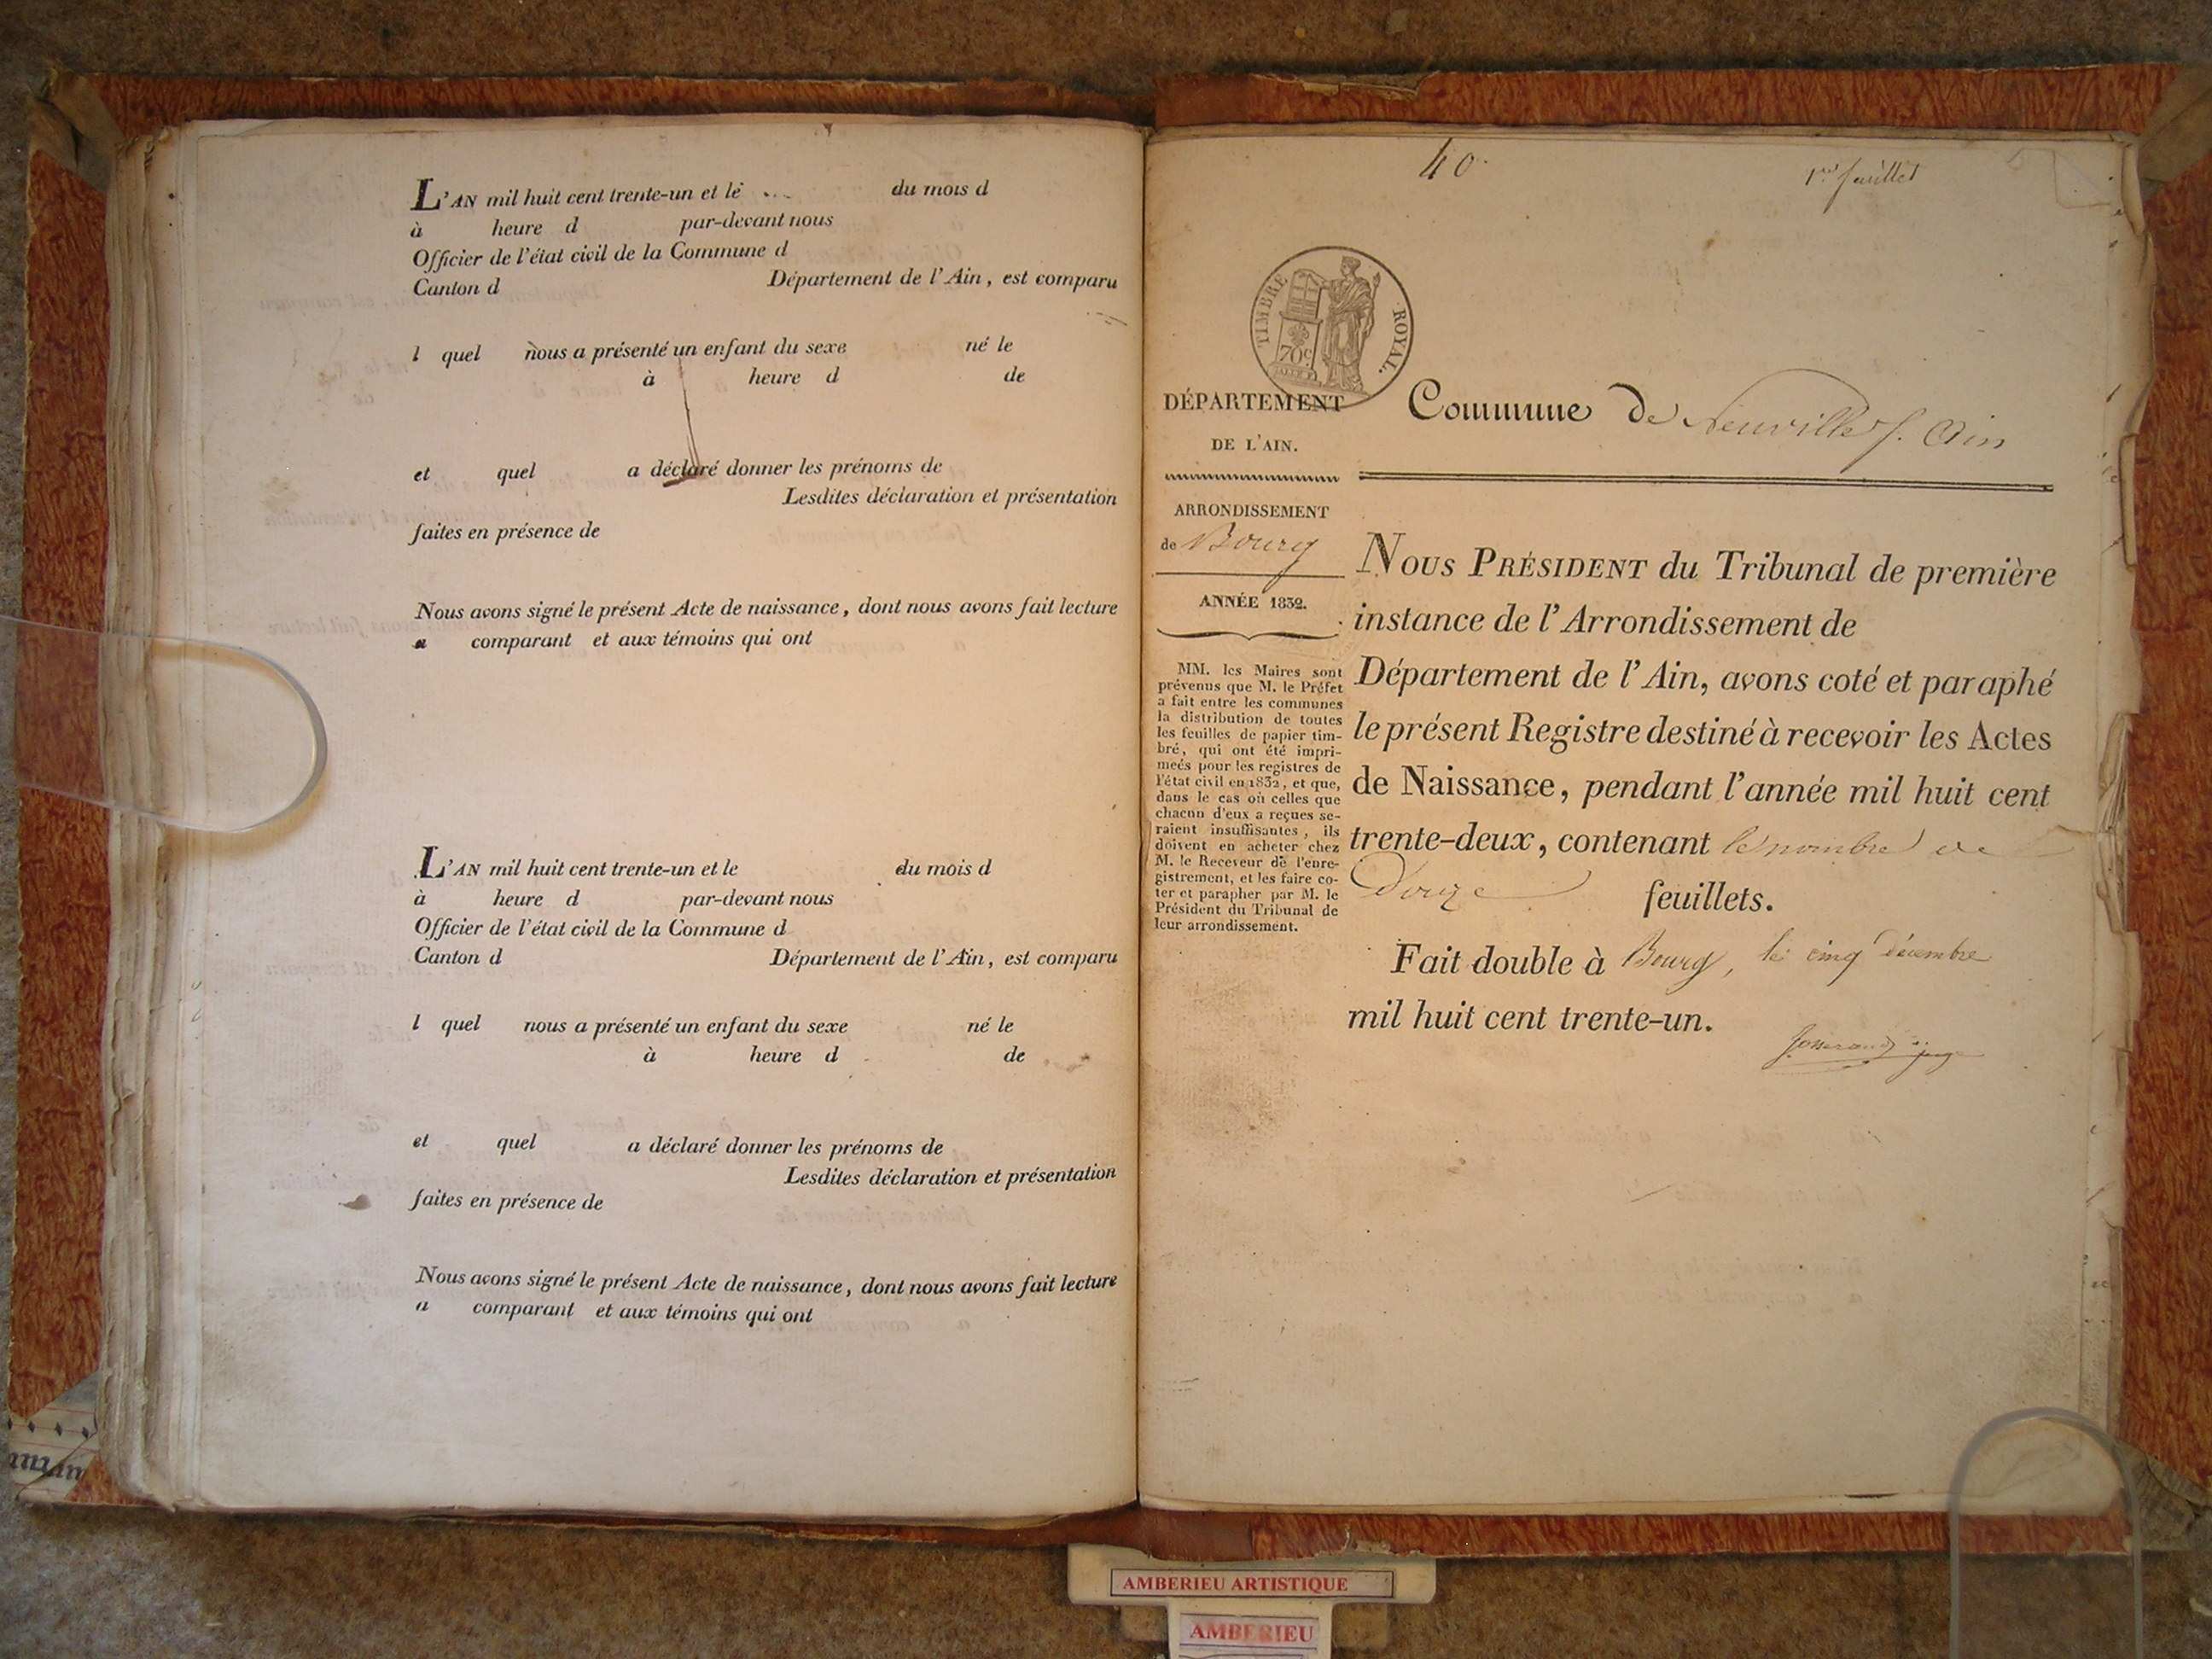 L'AN mil huit cent trente-un et le du mois d
à heure d par-devant nous
Officier de l'état civil de la Commune d
Canton d Département de l'Ain, est comparu
l quel nous a présenté un enfant du sexe né le
à heure d de
et quel a déclaré donner les prénoms de
Lesdites déclaration et présentation
faites en présence de
Nous avons signé le présent Acte de naissance, dont nous avons fait lecture
a comparant et aux témoins qui ont
L'AN mil huit cent trente-un et le du mois d
à heure d par-devant nous
Officier de l'état civil de la Commune d
Canton d Département de l'Ain, est comparu
l quel nous a présenté un enfant du sexe né le
à heure d de
et quel a déclaré donner les prénoms de
Lesdites déclaration et présentation
faites en présence de
Nous avons signé le présent Acte de naissance, dont nous avons fait lecture
a comparant et aux témoins qui ont
40.
1er feuillet
TIMBRE ROYAL.
70c
DÉPARTEMENT
DE L'AIN.
ARRONDISSEMENT
de Bourg
ANNÉE 1832.
MM. les Maires sont
prévenus que M. le Préfet
a fait entre les communes
la distribution de toutes
les feuilles de papier tim-
bré, qui ont été impri-
meés pour les registres de
l'état civil en 1832, et que,
dans le cas où celles que
chacun d'eux a reçues se-
raient insuffisantes, ils
doivent en acheter chez
M. le Receveur de l'enre-
gistrement, et les faire co-
ter et parapher par M. le
Président du Tribunal de
leur arrondissement.
Commune de Neuville s. Ain
NOUS PRÉSIDENT du Tribunal de première
instance de l'Arrondissement de
Département de l'Ain, avons coté et paraphé
le présent Registre destiné à recevoir les Actes
de Naissance, pendant l'année mil huit cent
trente-deux, contenant le nombre de
Douze feuillets.
Fait double à Bourg, le cinq décembre
mil huit cent trente-un.
AMBERIEU ARTISTIQUE
AMBERIEU